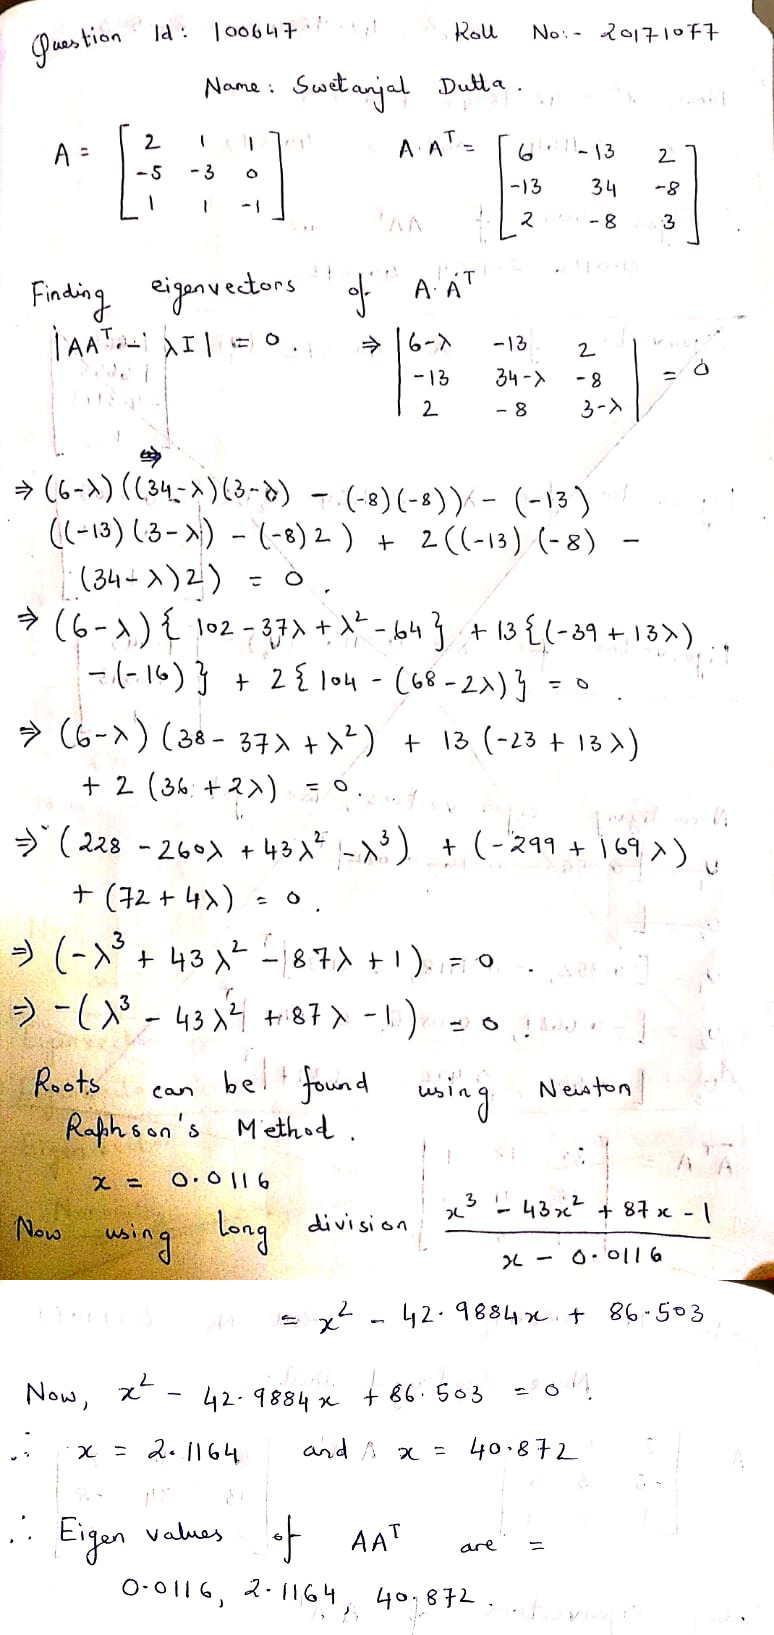 Question Id: 100647 Roll No:- 20171077
Name: Swetanjal Dutta.
A = [ 2 1 1 A.Aᵀ = [ 6 -13 2
-5 -3 0 -13 34 -8
1 1 -1 ] 2 -8 3 ]
Finding eigenvectors of A.Aᵀ
|AAᵀ - λI| = 0. ⇒ | 6-λ -13 2
-13 34-λ -8 | = 0
2 -8 3-λ
⇒ (6-λ)((34-λ)(3-λ) - (-8)(-8)) - (-13)
((-13)(3-λ) - (-8)2) + 2((-13)(-8) -
(34-λ)2) = 0.
⇒ (6-λ){ 102 - 37λ + λ² - 64} + 13{(-39 + 13λ)
- (-16)} + 2{104 - (68 - 2λ)} = 0
⇒ (6-λ)(38 - 37λ + λ²) + 13(-23 + 13λ)
+ 2(36 + 2λ) = 0.
⇒ (228 - 260λ + 43λ² - λ³) + (-299 + 169λ)
+ (72 + 4λ) = 0.
⇒ (-λ³ + 43λ² - 87λ + 1) = 0.
⇒ -(λ³ - 43λ² + 87λ - 1) = 0
Roots can be found using Newton
Raphson's Method.
x = 0.0116
Now using long division x³ - 43x² + 87x - 1
x - 0.0116
= x² - 42.9884x + 86.503
Now, x² - 42.9884x + 86.503 = 0
∴ x = 2.1164 and x = 40.872
∴ Eigen values of AAᵀ are =
0.0116, 2.1164, 40.872.